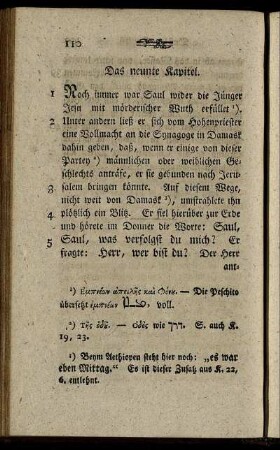 110
Das neunte Kapitel.
1 Noch immer war Saul wider die Jünger
Jesu mit mörderischer Wuth erfüllet ¹).
2 Unter andern ließ er sich vom Hohenpriester
eine Vollmacht an die Synagoge in Damask
dahin geben, daß, wenn er einige von dieser
Partey ²) männlichen oder weiblichen Ge-
schlechts anträfe, er sie gebunden nach Jeru-
3 salem bringen könnte. Auf diesem Wege,
nicht weit von Damask ³), umstrahlete ihn
4 plöhlich ein Blitz. Er fiel hierüber zur Erde
und hörete im Donner die Worte: Saul,
5 Saul, was verfolgst du mich? Er
fragte: Herr, wer bist du? Der Herr
ant-
¹) Εμπνέων απειλῆς καὶ Φόνυ. — Die Peschito
übersetzt εμπνέων voll.
²) Τῆς ὁδῦ. — Οδὸς wie דרך S. auch K.
19, 23.
³) Beym Aethiopen steht hier noch: „es war
eben Mittag.“ Es ist dieser Zusatz aus K. 22,
6. entlehnt.